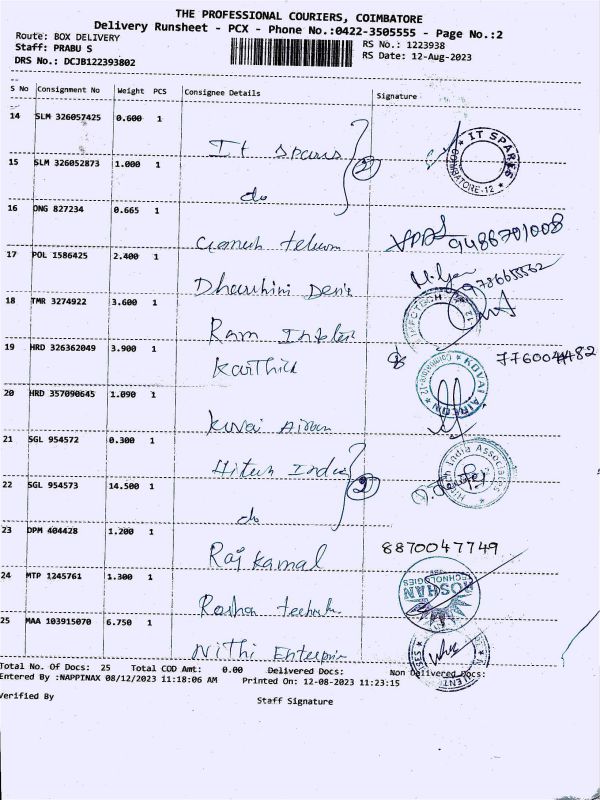 THE PROFESSIONAL COURIERS, COIMBATORE
Delivery Runsheet - PCX - Phone No.:0422-3505555 - Page No.:2
Route: BOX DELIVERY
RS No.: 1223938
Staff: PRABU S
RS Date: 12-Aug-2023
DRS No.: DCJB122393802
S No Consignment No Weight PCS Consignee Details Signature
14 SLM 326057425 0.600 1
It spares
IT SPARES COIMBATORE-12
15 SLM 326052873 1.000 1
2
do
16 ONG 827234 0.665 1
9486701008
17 POL 1586425 2.400 1
18 TMR 3274922 3.600 1
INFOTECH
Ram
19 HRD 326362049 3.900 1
Karthik
7760044482
KOVAI AIRCON Coimbatore-12
20 HRD 357090645 1.090 1
Kovai Aircon
21 SGL 954572 0.300 1
Hitun India
India Associates
22 SGL 954573 14.500 1
2
do
23 DPM 404428 1.200 1
Raj Kamal
8870047749
24 MTP 1245761 1.300 1
ROSHAN TECHNOLOGIES
25 MAA 103915070 6.750 1
Nithi Enterprise
Total No. Of Docs: 25 Total COD Amt: 0.00 Delivered Docs: Non Delivered Docs:
Entered By :NAPPINAX 08/12/2023 11:18:06 AM Printed On: 12-08-2023 11:23:15
Verified By
Staff Signature